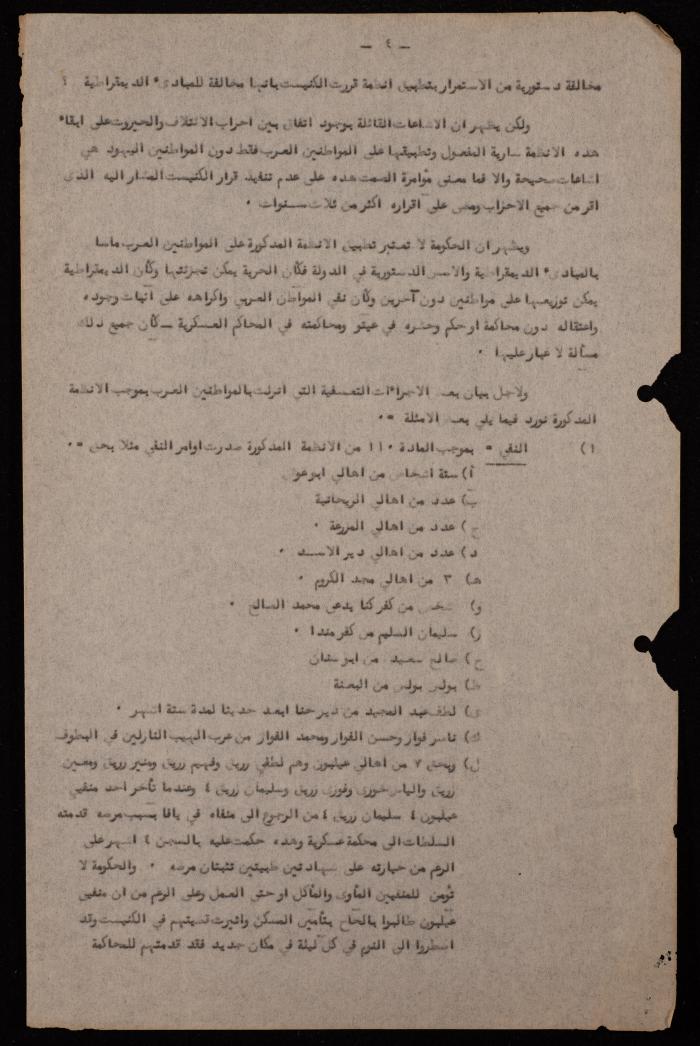 — ٤ —
مخالفة دستورية من الاستمرار بتطبيق انظمة قررت الكنيست بانها مخالفة للمبادىء الديمقراطية ؟
ولكن يظهر ان الاشاعات القائلة بوجود اتفاق بين احزاب الائتلاف والحيروت على ابقاء
هذه الانظمة سارية المفعول وتطبيقها على المواطنين العرب فقط دون المواطنين اليهود هي
اشاعات صحيحة والا فما معنى مؤامرة الصمت هذه على عدم تنفيذ قرار الكنيست المشار اليه الذى
اقر من جميع الاحزاب ومضى على اقراره اكثر من ثلاث سنوات .
ويظهر ان الحكومة لا تعتبر تطبيق الانظمة المذكورة على المواطنين العرب ماسا
بالمبادىء الديمقراطية والاسس الدستورية في الدولة فكأن الحرية يمكن تجزئتها وكأن الديمقراطية
يمكن توزيعها على مواطنين دون آخرين وكأن نفي المواطن العربي واكراهه على اثبات وجوده
واعتقاله دون محاكمة او حكم وحشره في غيتو ومحاكمته في المحاكم العسكرية - كأن جميع ذلك
مسألة لا غبار عليها .
ولاجل بيان بعض الاجراءات التعسفية التي انزلت بالمواطنين العرب بموجب الانظمة
المذكورة نورد فيما يلي بعض الامثلة =.
١) النفي = بموجب المادة ١١٠ من الانظمة المذكورة صدرت اوامر النفي مثلا بحق =.
أ) ستة اشخاص من اهالي
ب) عدد من اهالي الريحانية
ج) عدد من اهالي المزرعة .
د) عدد من اهالي دير الاسد .
هـ) ٣ من اهالي مجد الكروم .
و) شخص من كفر كنا يدعى محمد الصالح .
ز) سليمان السليم من كفر مندا .
ح) صالح سعيد من ابو سنان
ط) بولس بولس من البعنة
ى) لطف عبد المجيد من دير حنا ابعد حديثا لمدة ستة اشهر .
ك) ناصر فواز وحسن الفواز ومحمد الفواز من عرب الهيب النازلين في البطوف
ل) وبحق ٧ من اهالي عيلبون وهم لطفي زريق وفهيم زريق ومنير زريق ومعين
زريق والياس خورى وفوزى زريق وسليمان زريق ٤ وعندما تأخر احد منفيي
عيلبون ٤ سليمان زريق ٤ من الرجوع الى منفاه في يافا بسبب مرضه قدمته
السلطات الى محكمة عسكرية وهذه حكمت عليه بالسجن ٤ اشهر على
الرغم من حيازته على شهادتين طبيتين تثبتان مرضه . والحكومة لا
تؤمن للمنفيين المأوى والمأكل او حتى العمل وعلى الرغم من ان منفيي
عيلبون طالبوا بالحاح بتأمين المسكن واثيرت قضيتهم في الكنيست وقد
اضطروا الى النوم في كل ليلة في مكان جديد فقد قدمتهم للمحاكمة